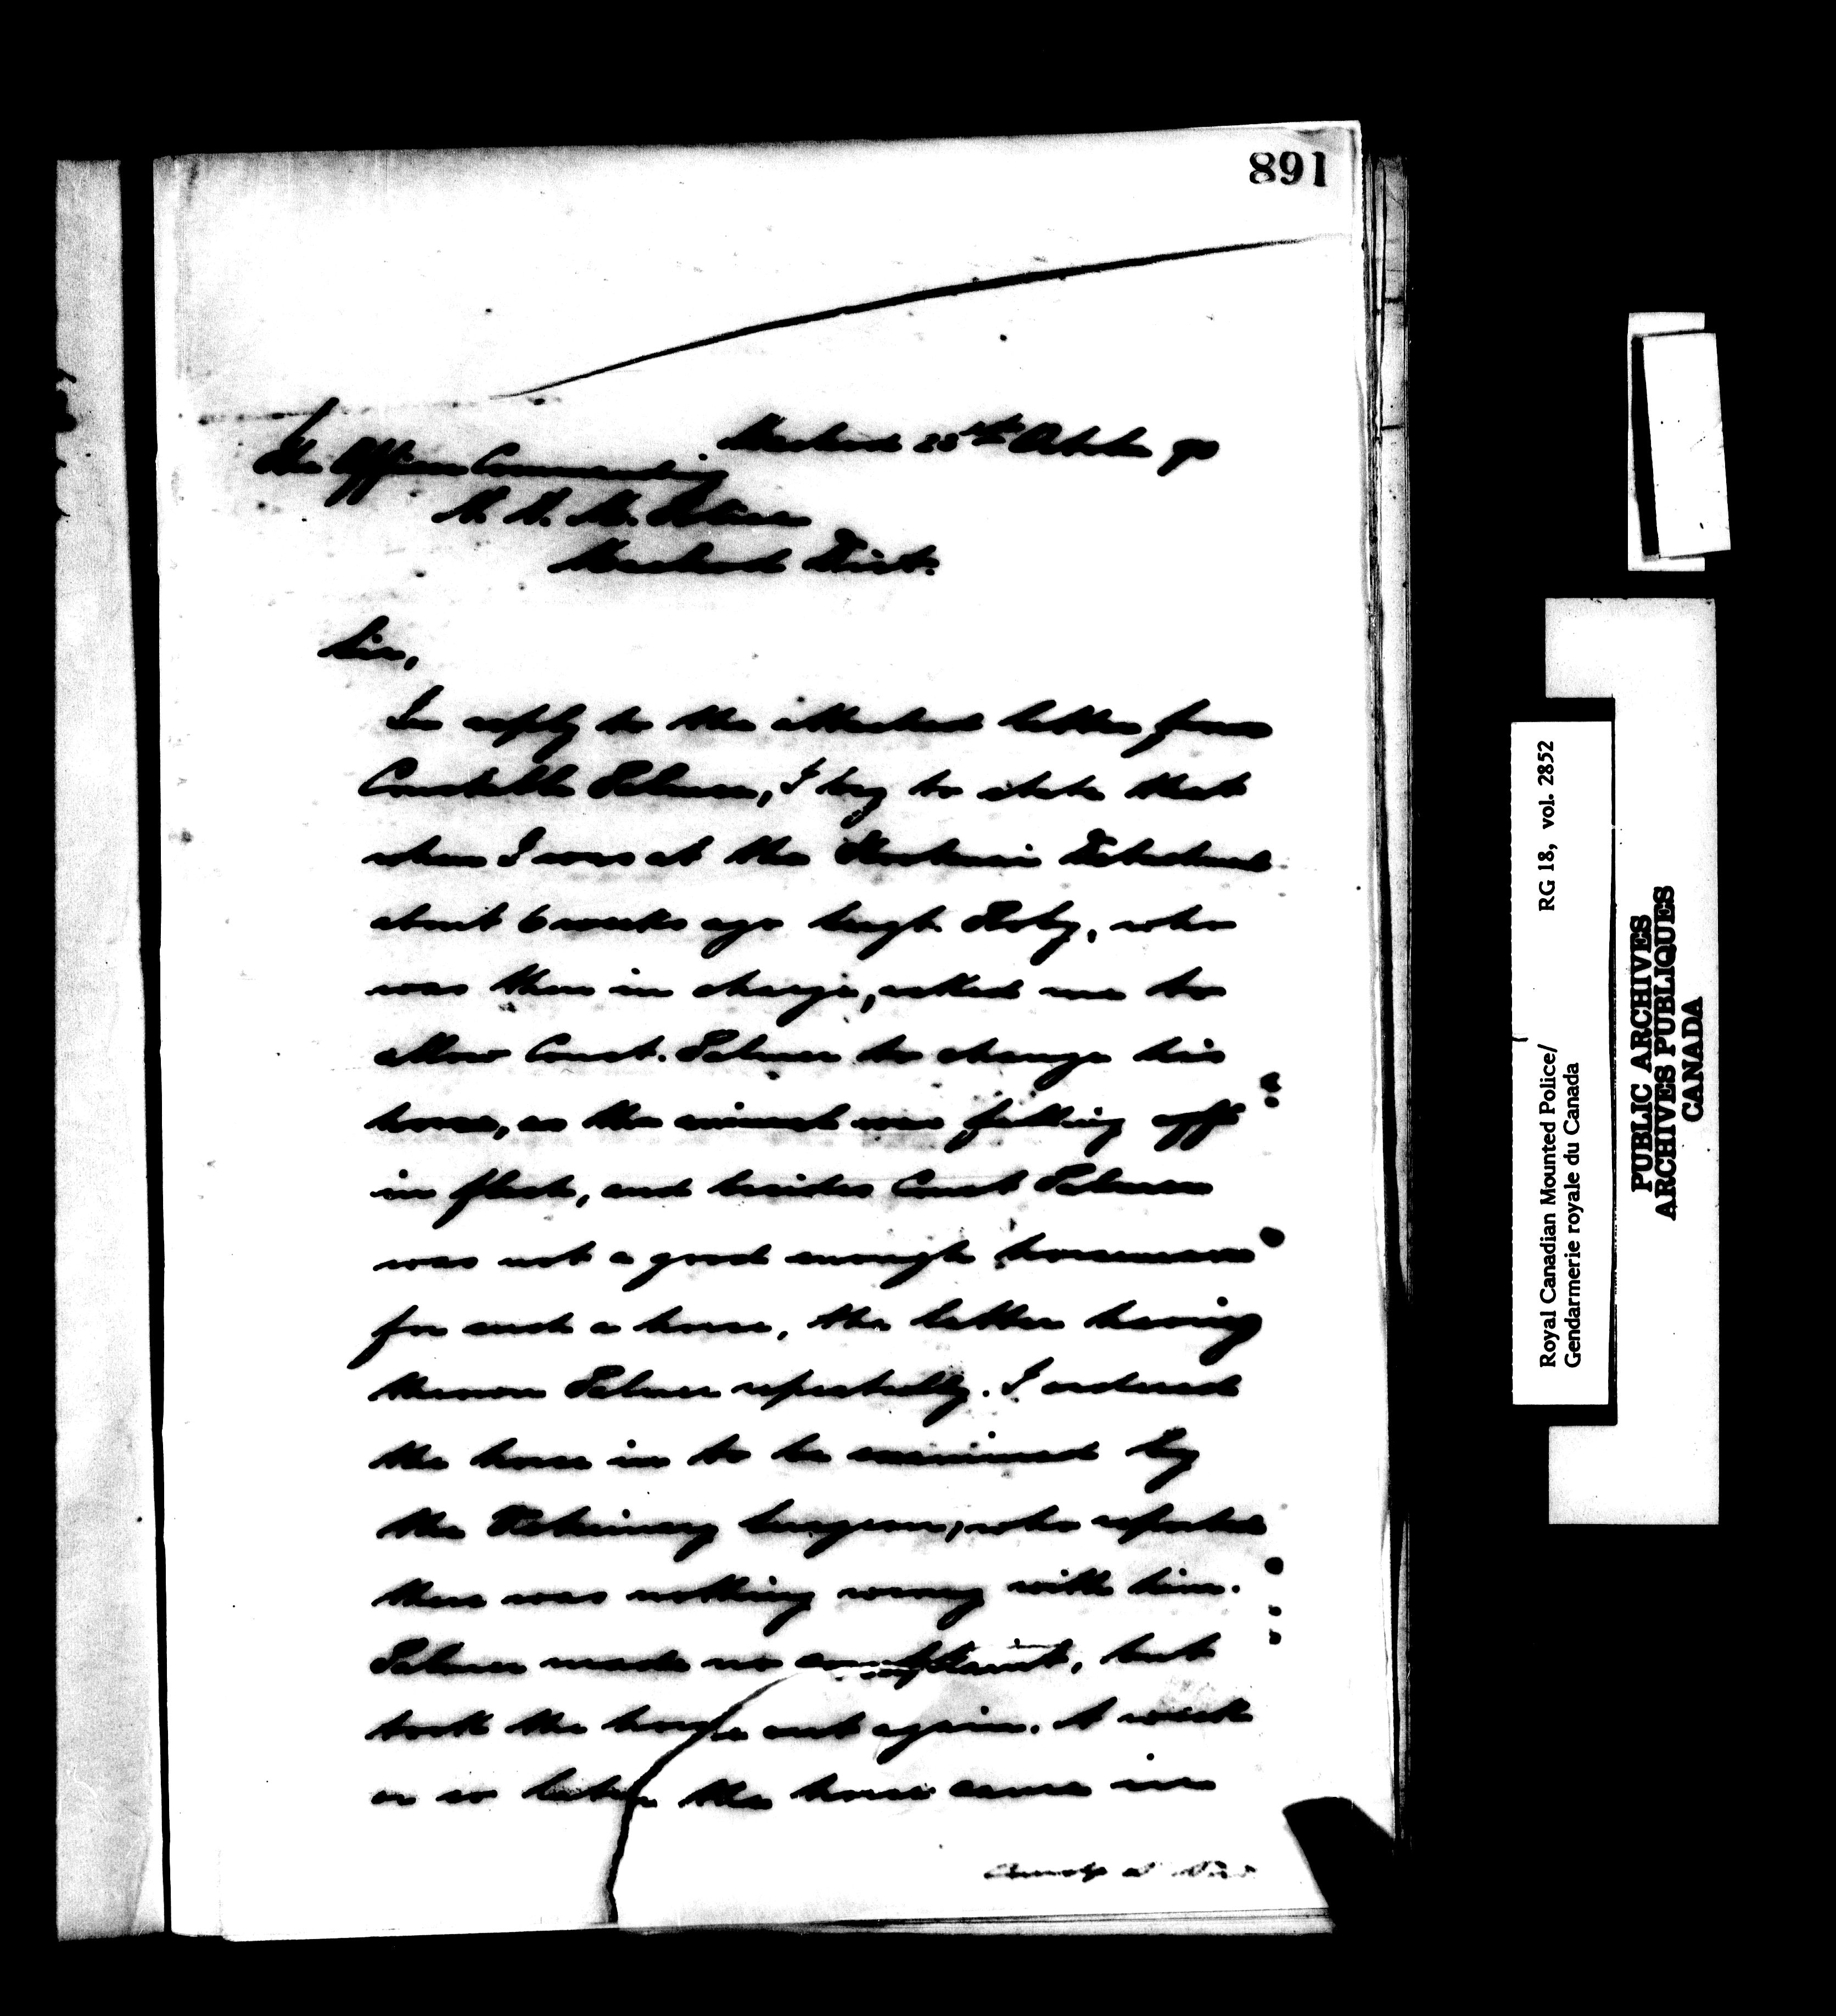 891
Macleod 25th October 90
The Officer Commanding
N. W. M. Police
Macleod Dist.
Sir,
In reply to the attached letter from
Constable Palmer, I beg to state that
when I was at the Kootenai Detachment
about 6 weeks ago Sergt. , who
was then in charge, asked me to
allow Const. Palmer to change his
horse, as the animal was falling off
in flesh, and besides Const Palmer
was not a good enough horseman
for such a horse, the latter having
thrown Palmer repeatedly. I ordered
the horse in to be examined by
the Veterinary Surgeon, who reported
there was nothing wrong with him.
Palmer made no complaint, but
took the horse out again. A week
or so later the horse came in
Royal Canadian Mounted Police/ RG 18, vol. 2852
Gendarmerie royale du Canada
PUBLIC ARCHIVES
ARCHIVES PUBLIQUES
CANADA